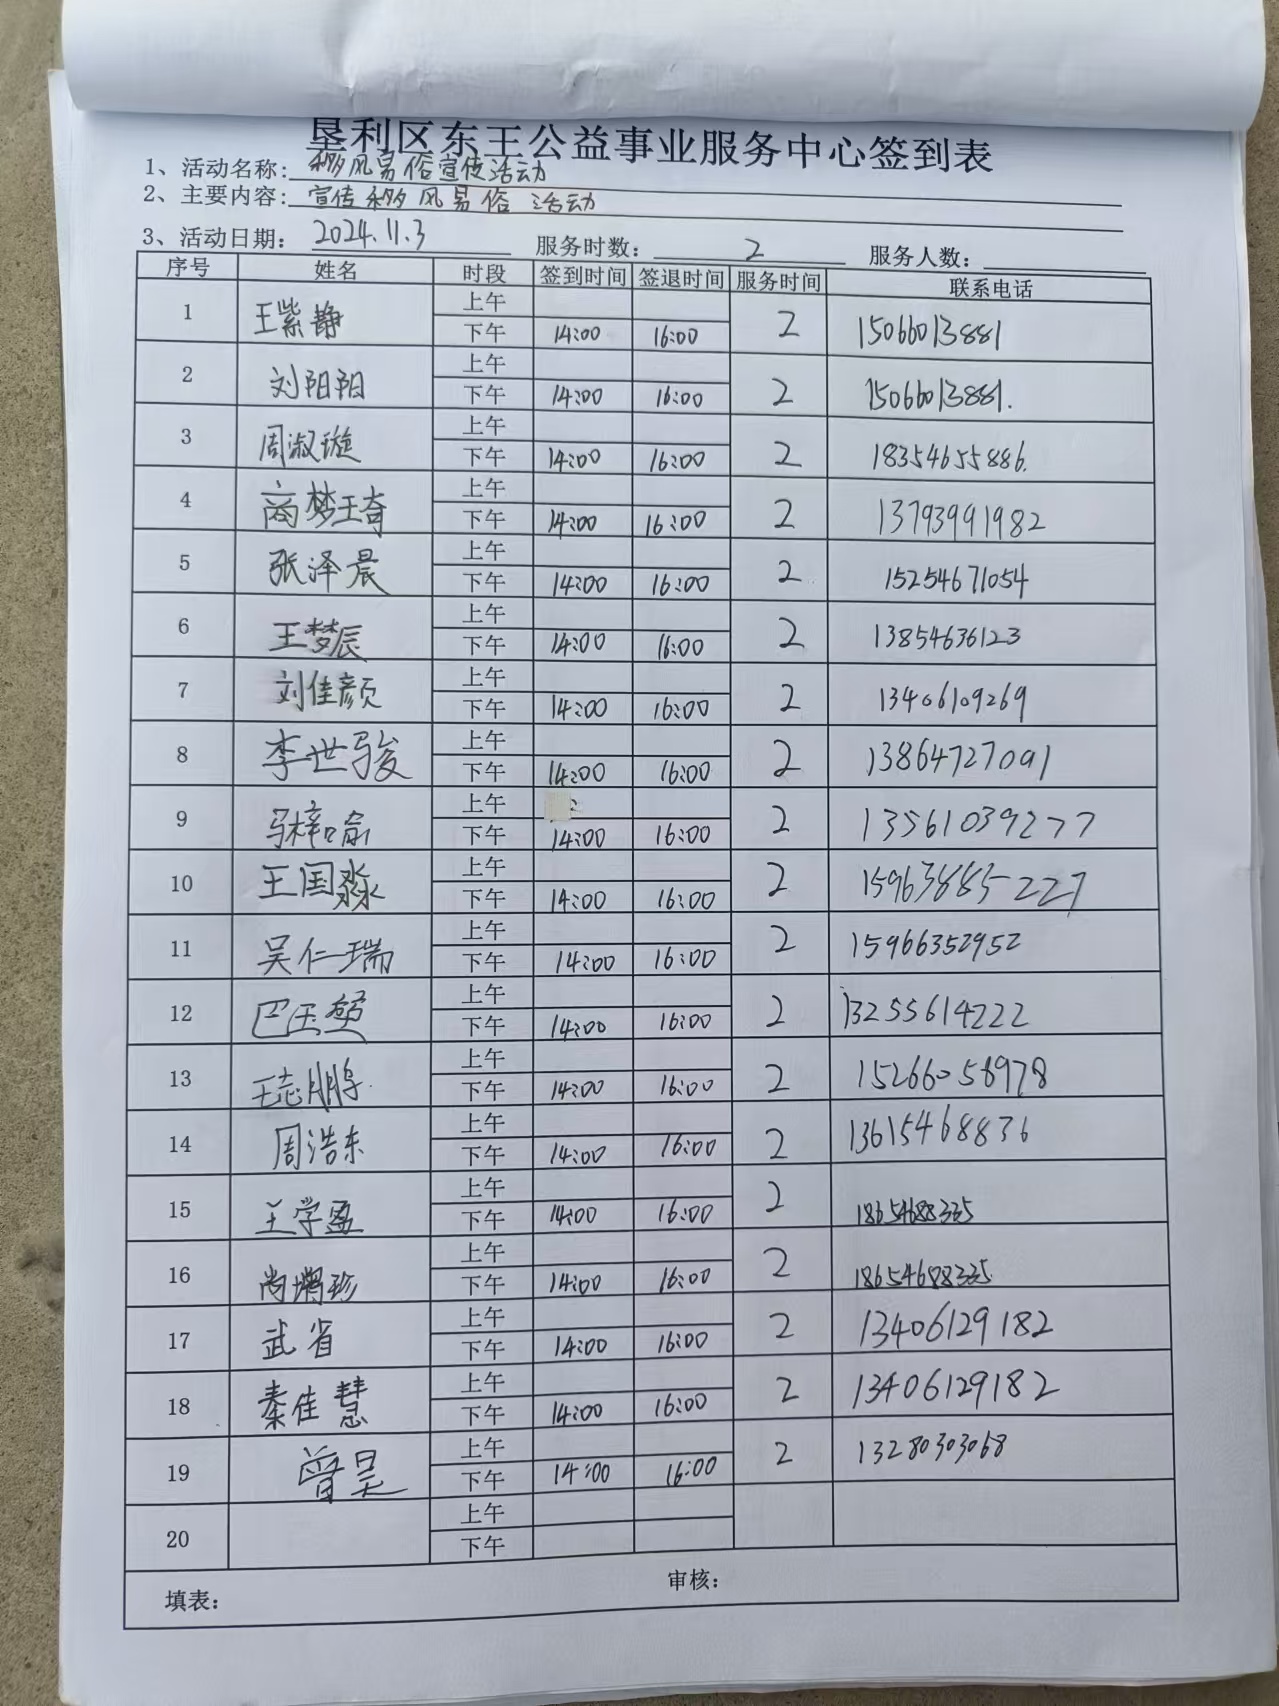 垦利区东王公益事业服务中心签到表
1、活动名称：移风易俗宣传活动
2、主要内容：宣传移风易俗 活动
3、活动日期：2024.11.3 服务时数：2 服务人数：
序号 姓名 时段 签到时间 签退时间 服务时间 联系电话
1 王紫静 上午 2 15066013881
下午 14:00 16:00
2 刘阳阳 上午 2 15066013881.
下午 14:00 16:00
3 周淑璇 上午 2 18354655886.
下午 14:00 16:00
4 商梦琦 上午 2 13793991982
下午 14:00 16:00
5 张泽晨 上午 2 15254671054
下午 14:00 16:00
6 王梦辰 上午 2 13854636123
下午 14:00 16:00
7 刘佳颜 上午 2 13406109269
下午 14:00 16:00
8 李世骏 上午 2 13864727091
下午 14:00 16:00
9 马梓喻 上午 2 13561039277
下午 14:00 16:00
10 王国淼 上午 2 15963885227
下午 14:00 16:00
11 吴仁瑞 上午 2 15966352952
下午 14:00 16:00
12 巴玉 上午 2 13255614222
下午 14:00 16:00
13 王志鹏 上午 2 15266056978
下午 14:00 16:00
14 周浩东 上午 2 13615468836
下午 14:00 16:00
15 王学盈 上午 2 18654688335
下午 14:00 16:00
16 尚 珍 上午 2 18654688335
下午 14:00 16:00
17 武省 上午 2 13406129182
下午 14:00 16:00
18 秦佳慧 上午 2 13406129182
下午 14:00 16:00
19 曾昊 上午 2 13280303068
下午 14:00 16:00
20 上午
下午
填表： 审核：